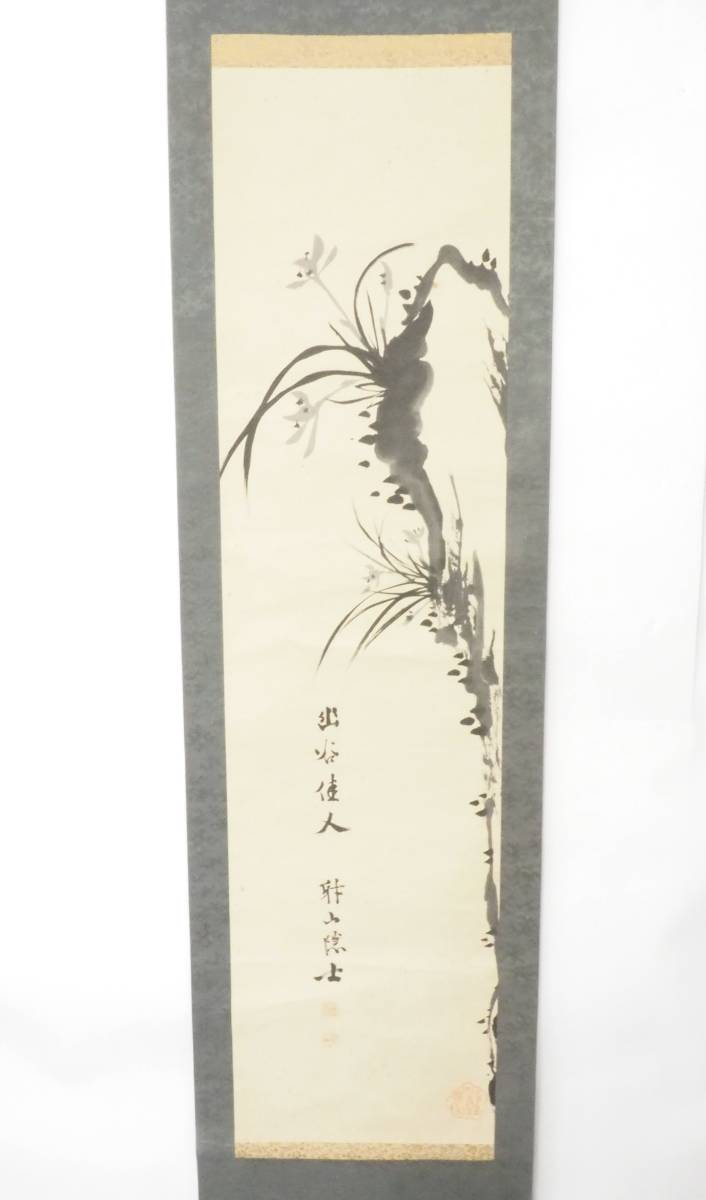 幽谷佳人 耕山隠士